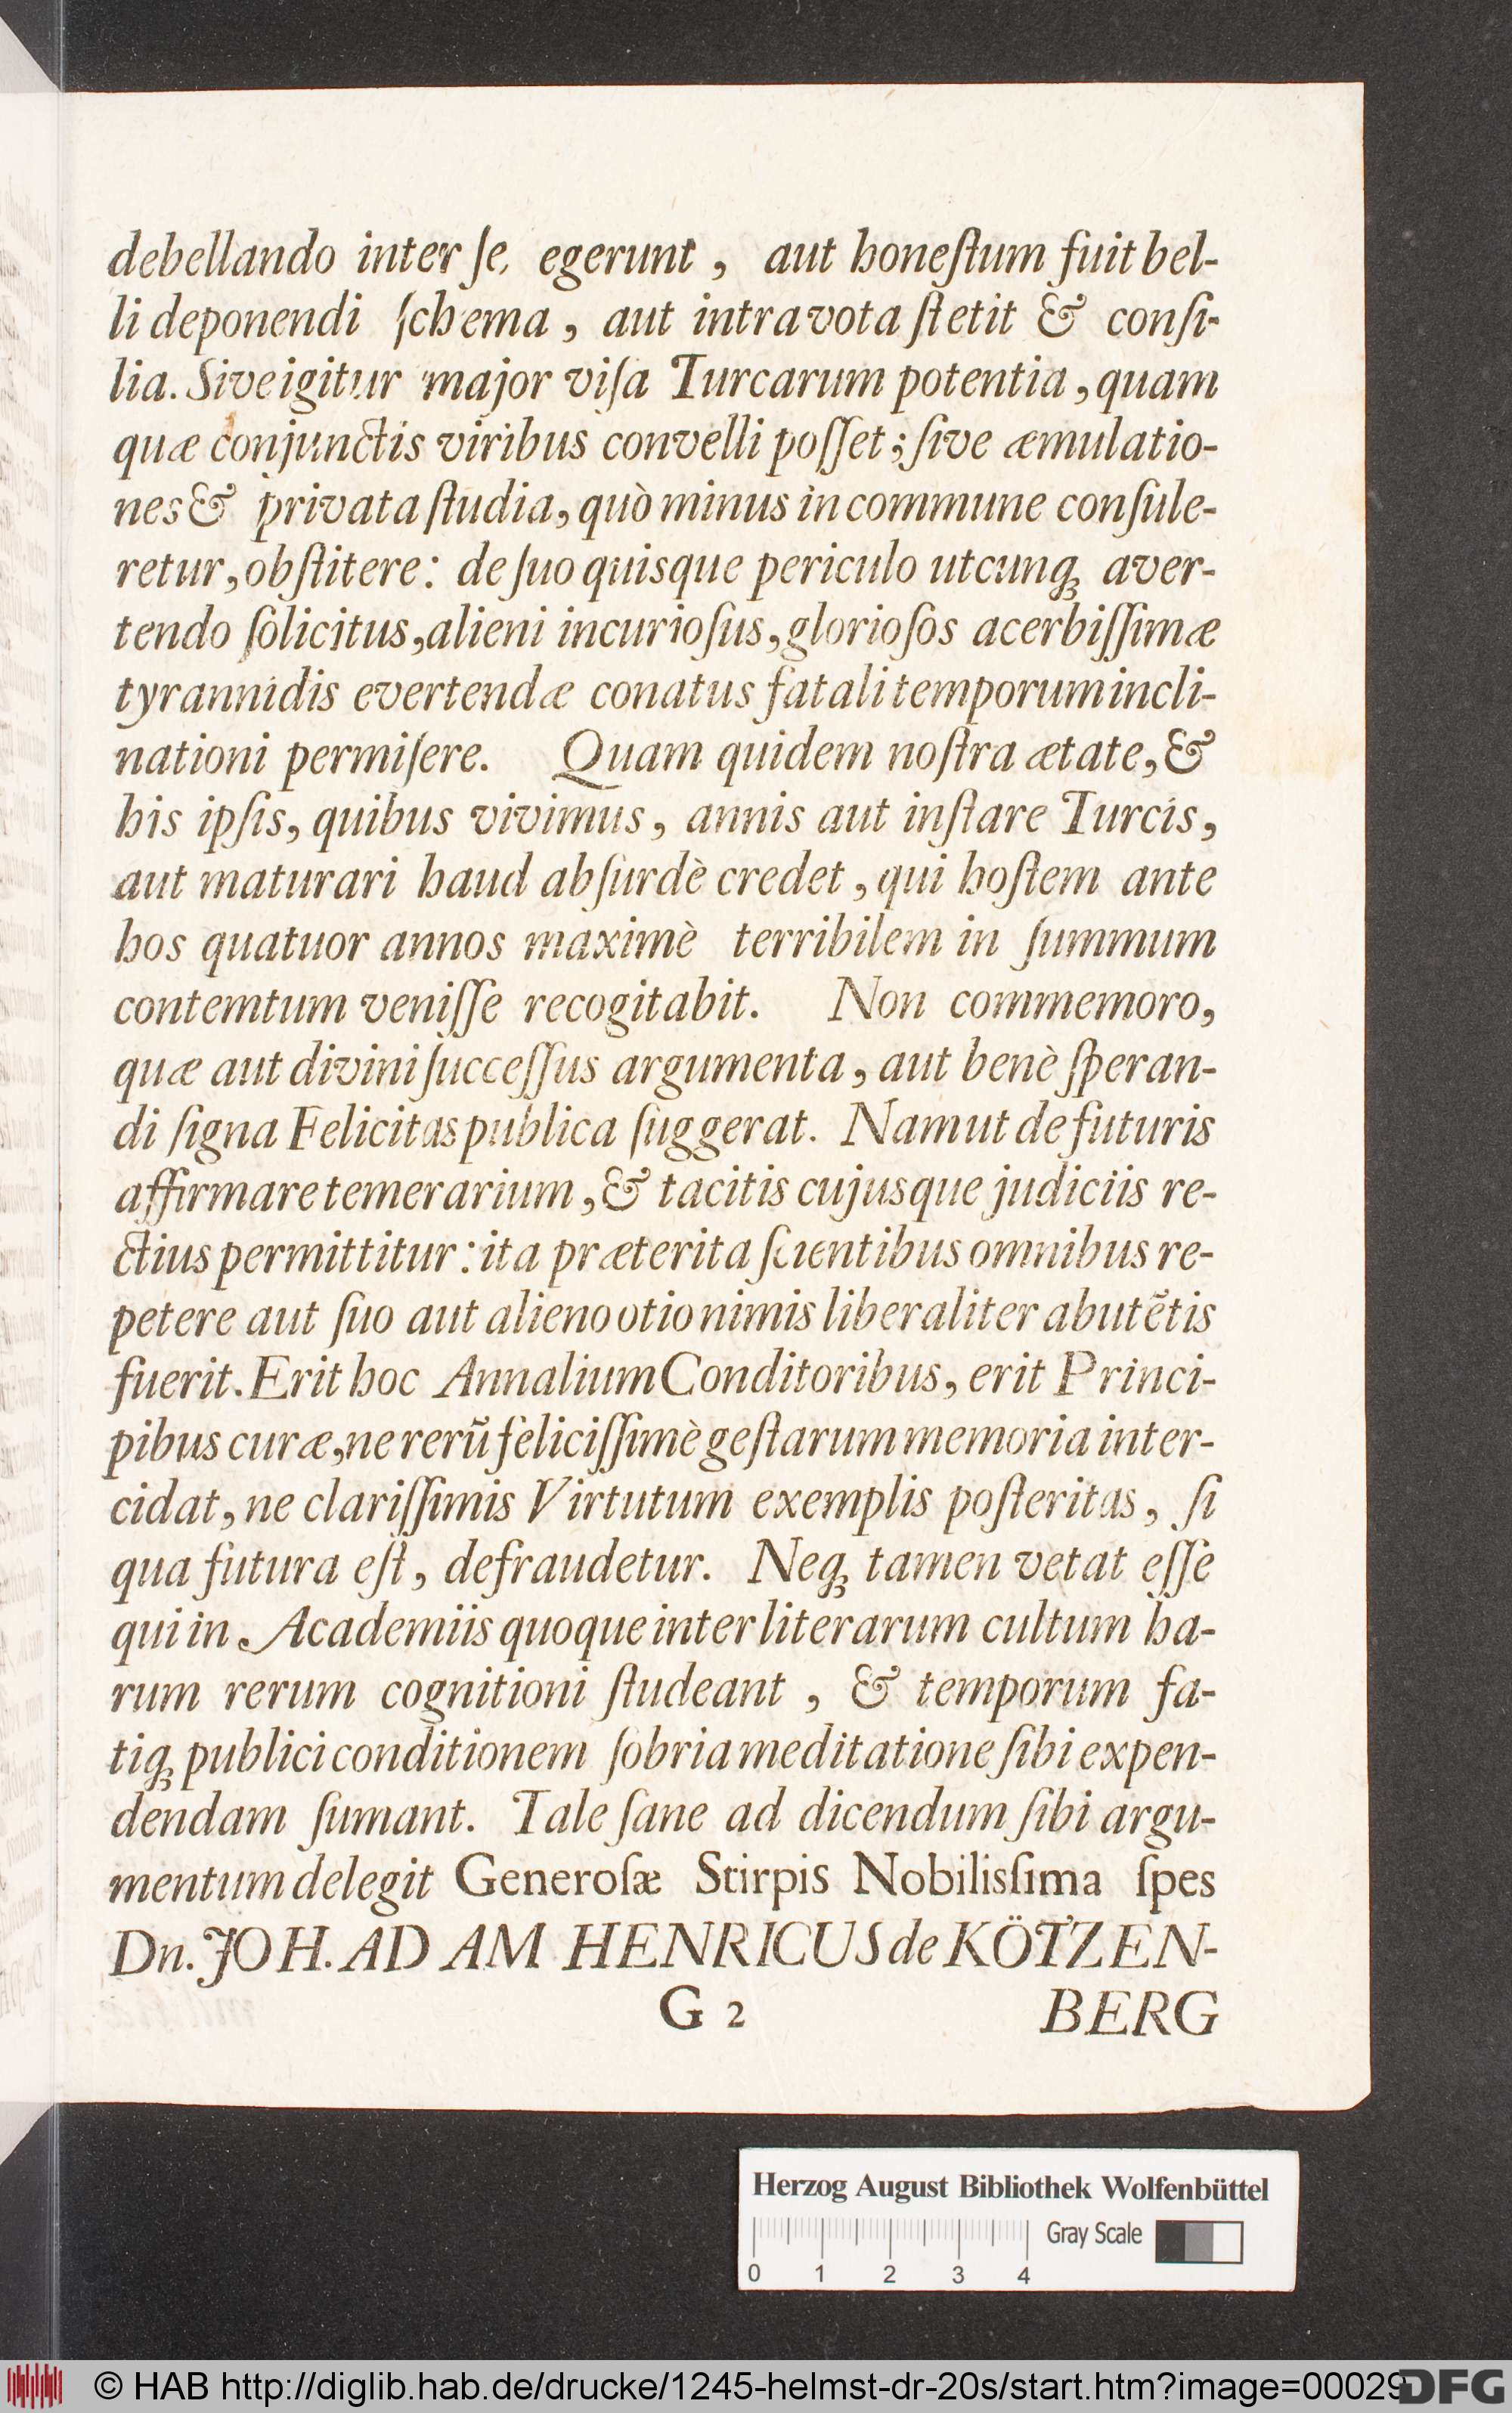 debellando inter ſe, egerunt, aut honeſtum fuit bel-
li deponendi ſchema, aut intra vota ſtetit & conſi-
lia. Sive igitur major viſa Turcarum potentia, quam
quæ conjunctis viribus convelli poſſet; ſive æmulatio-
nes & privata ſtudia, quò minus in commune conſule-
retur, obſtitere: de ſuo quisque periculo utcunq; aver-
tendo ſolicitus, alieni incurioſus, glorioſos acerbiſſimæ
tyrannidis evertendæ conatus fatali temporum incli-
nationi permiſere. Quam quidem noſtra ætate, &
his ipſis, quibus vivimus, annis aut inſtare Turcis,
aut maturari haud abſurdè credet, qui hoſtem ante
hos quatuor annos maximè terribilem in ſummum
contemtum veniſſe recogitabit. Non commemoro,
quæ aut divini ſucceſſus argumenta, aut benè ſperan-
di ſigna Felicitas publica ſuggerat. Nam ut de futuris
affirmare temerarium, & tacitis cujusque judiciis re-
ctius permittitur: ita præterita ſcientibus omnibus re-
petere aut ſuo aut alieno otio nimis liberaliter abutẽtis
fuerit. Erit hoc Annalium Conditoribus, erit Princi-
pibus curæ, ne rerũ feliciſſimè geſtarum memoria inter-
cidat, ne clariſſimis Virtutum exemplis poſteritas, ſi
qua futura eſt, defraudetur. Neq; tamen vetat eſſe
qui in Academiis quoque inter literarum cultum ha-
rum rerum cognitioni ſtudeant, & temporum fa-
tiq; publici conditionem ſobria meditatione ſibi expen-
dendam ſumant. Tale ſane ad dicendum ſibi argu-
mentum delegit Generoſæ Stirpis Nobilisſima ſpes
Dn. JOH. ADAM HENRICUS de KÖTZEN-
G 2 BERG
Herzog August Bibliothek Wolfenbüttel
Gray Scale
0 1 2 3 4
© HAB http://diglib.hab.de/drucke/1245-helmst-dr-20s/start.htm?image=00029
DFG